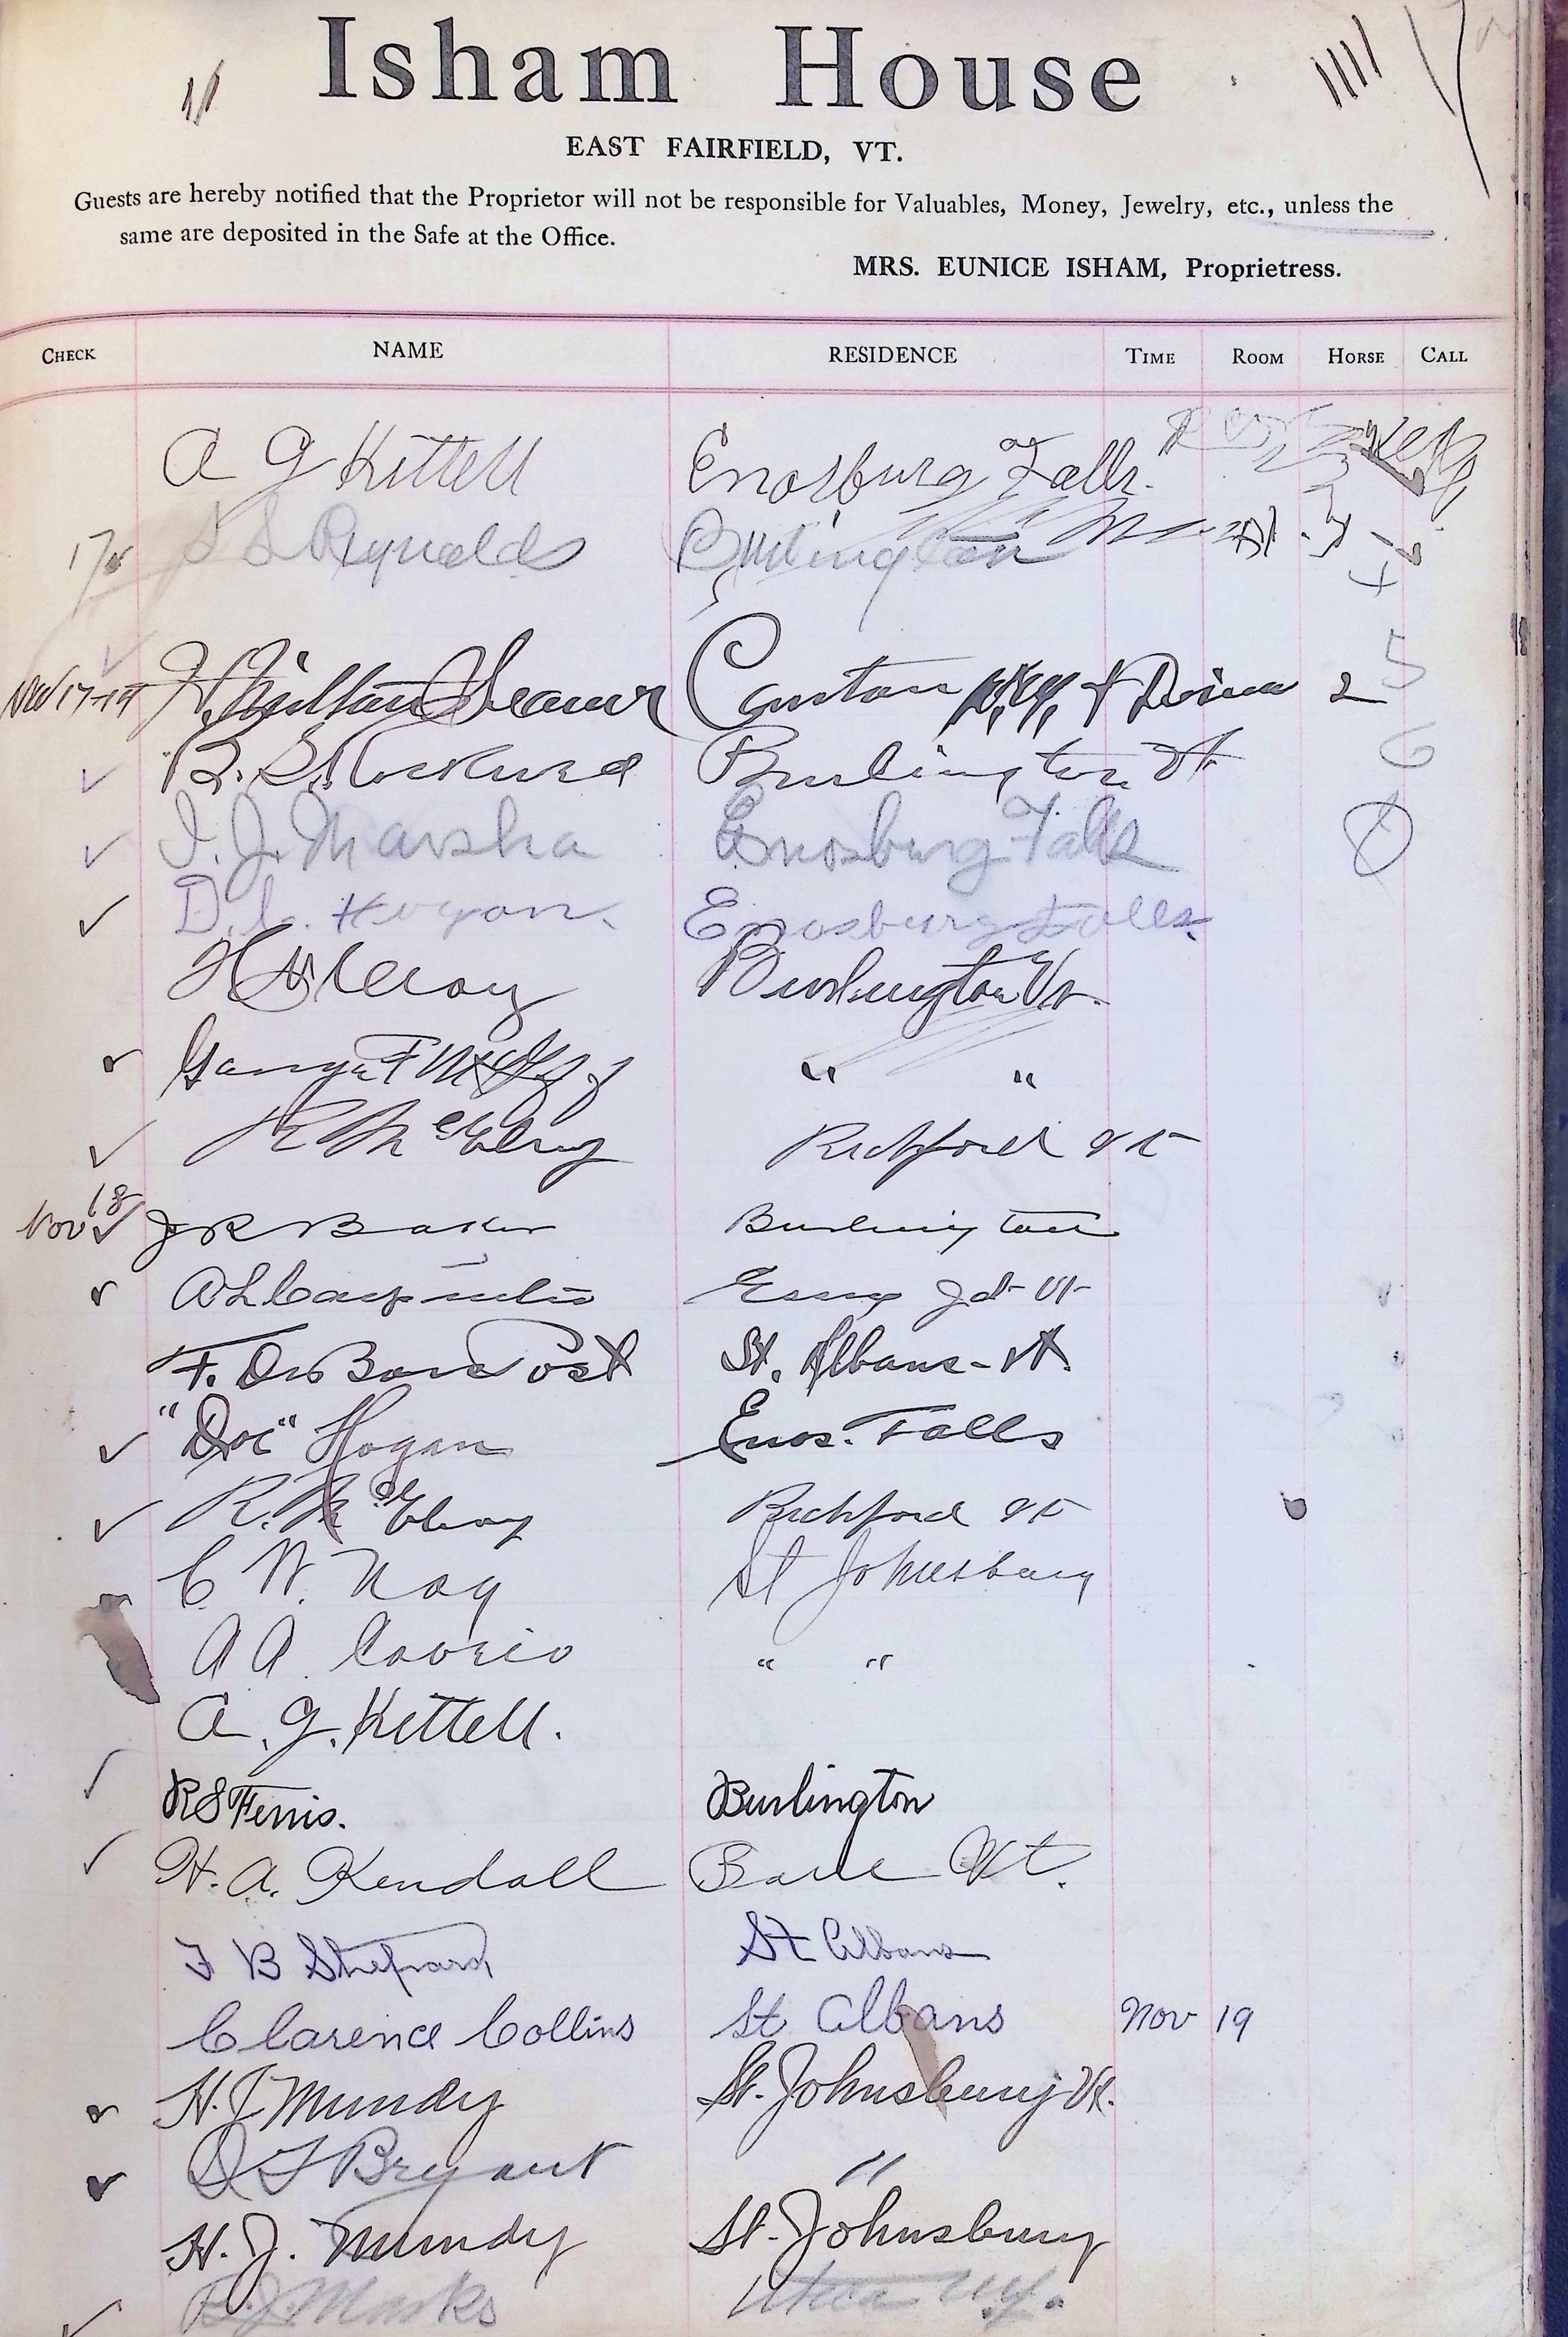 Isham House
EAST FAIRFIELD, VT.
Guests are hereby notified that the Proprietor will not be responsible for Valuables, Money, Jewelry, etc., unless the
same are deposited in the Safe at the Office.
MRS. EUNICE ISHAM, Proprietress.
CHECK NAME RESIDENCE TIME ROOM HORSE CALL
A G Kittell Enosburg Falls.
17 S S Reynolds Burlington
Nov 17-19 H. Canton N.Y. 2 5
B. Burlington Vt 6
I. J. Marsha Enosburg Falls
D. C. Hogan. Enosburg Falls.
Burlington Vt.
" "
R McElroy Richford Vt
Nov 18 J R Baker Burlington
A L Carpenter Essex Jct Vt
F. Post St. Albans - Vt.
"Doc" Hogan Enos. Falls
R. McElroy Richford Vt
C. W. Nay St Johnsbury
A A " "
A. G. Kittell.
R S Ferris. Burlington
H. A. Kendall Barre Vt.
F B Shepard St Albans
Clarence Collins St Albans Nov 19
H. J Mundy St. Johnsbury Vt.
D F Bryant "
H. J. Mundy St. Johnsbury
B. J. Marks Utica N.Y.